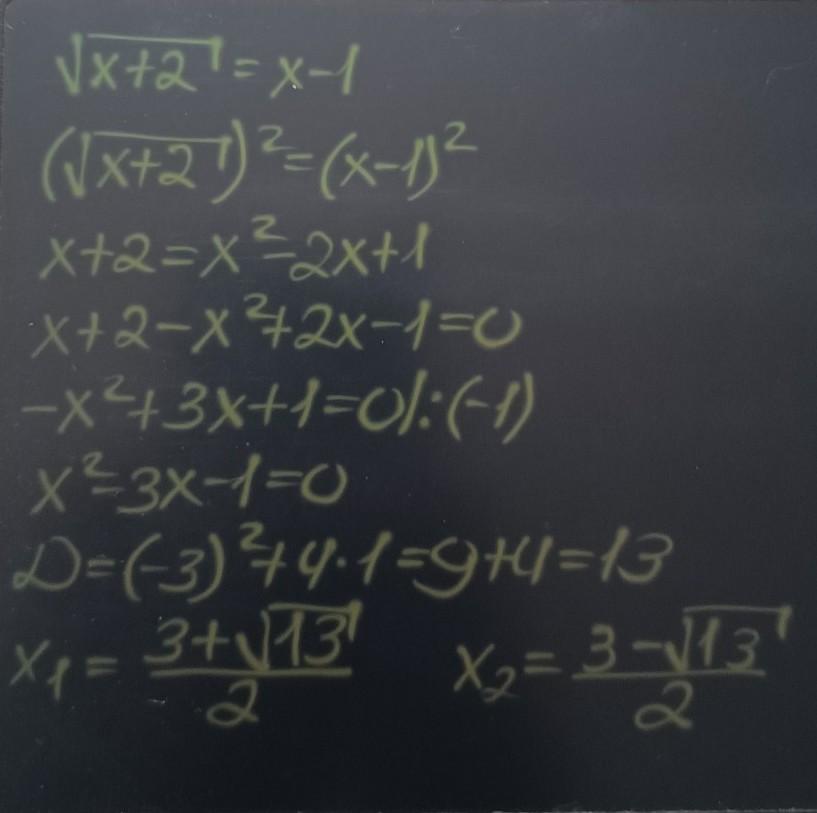 √(x+2) = x-1
(√(x+2))² = (x-1)²
x+2=x²-2x+1
x+2-x²+2x-1=0
-x²+3x+1=0|:(-1)
x²-3x-1=0
D=(-3)²+4·1=9+4=13
x₁ = (3+√13)/2 x₂ = (3-√13)/2